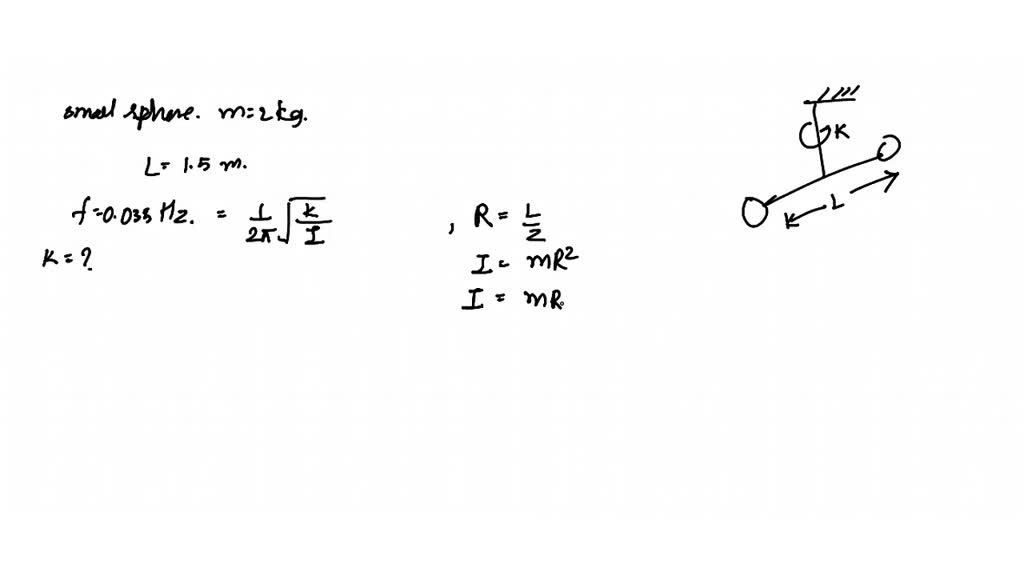 small sphere. m=2kg.
L= 1.5 m.
f=0.035 Hz. = 1/2π √k/I
K=?
, R= L/2
I= mR²
I = mR
K
L